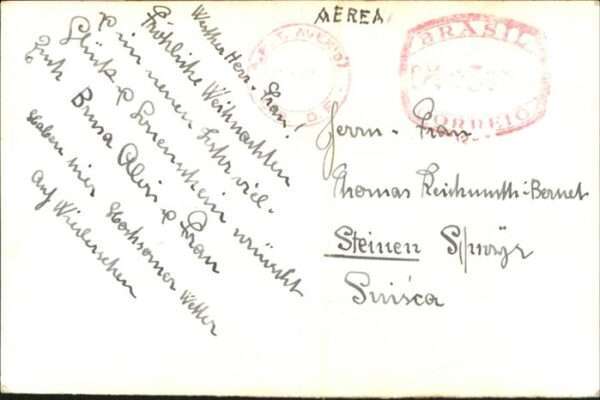 AEREA
BRASIL
CORREIO
Werther Herr + Frau!
Fröhliche Weihnachten
+ im neuen Jahr viel
Glück + Sonnenschein wünscht
Euch Bruna Alois + Frau
Haben hier Hochsommer Wetter
auf Wiedersehen
Herrn + Frau
Thomas Reichmuth-Bernet
Steinen Schwyz
Suisca